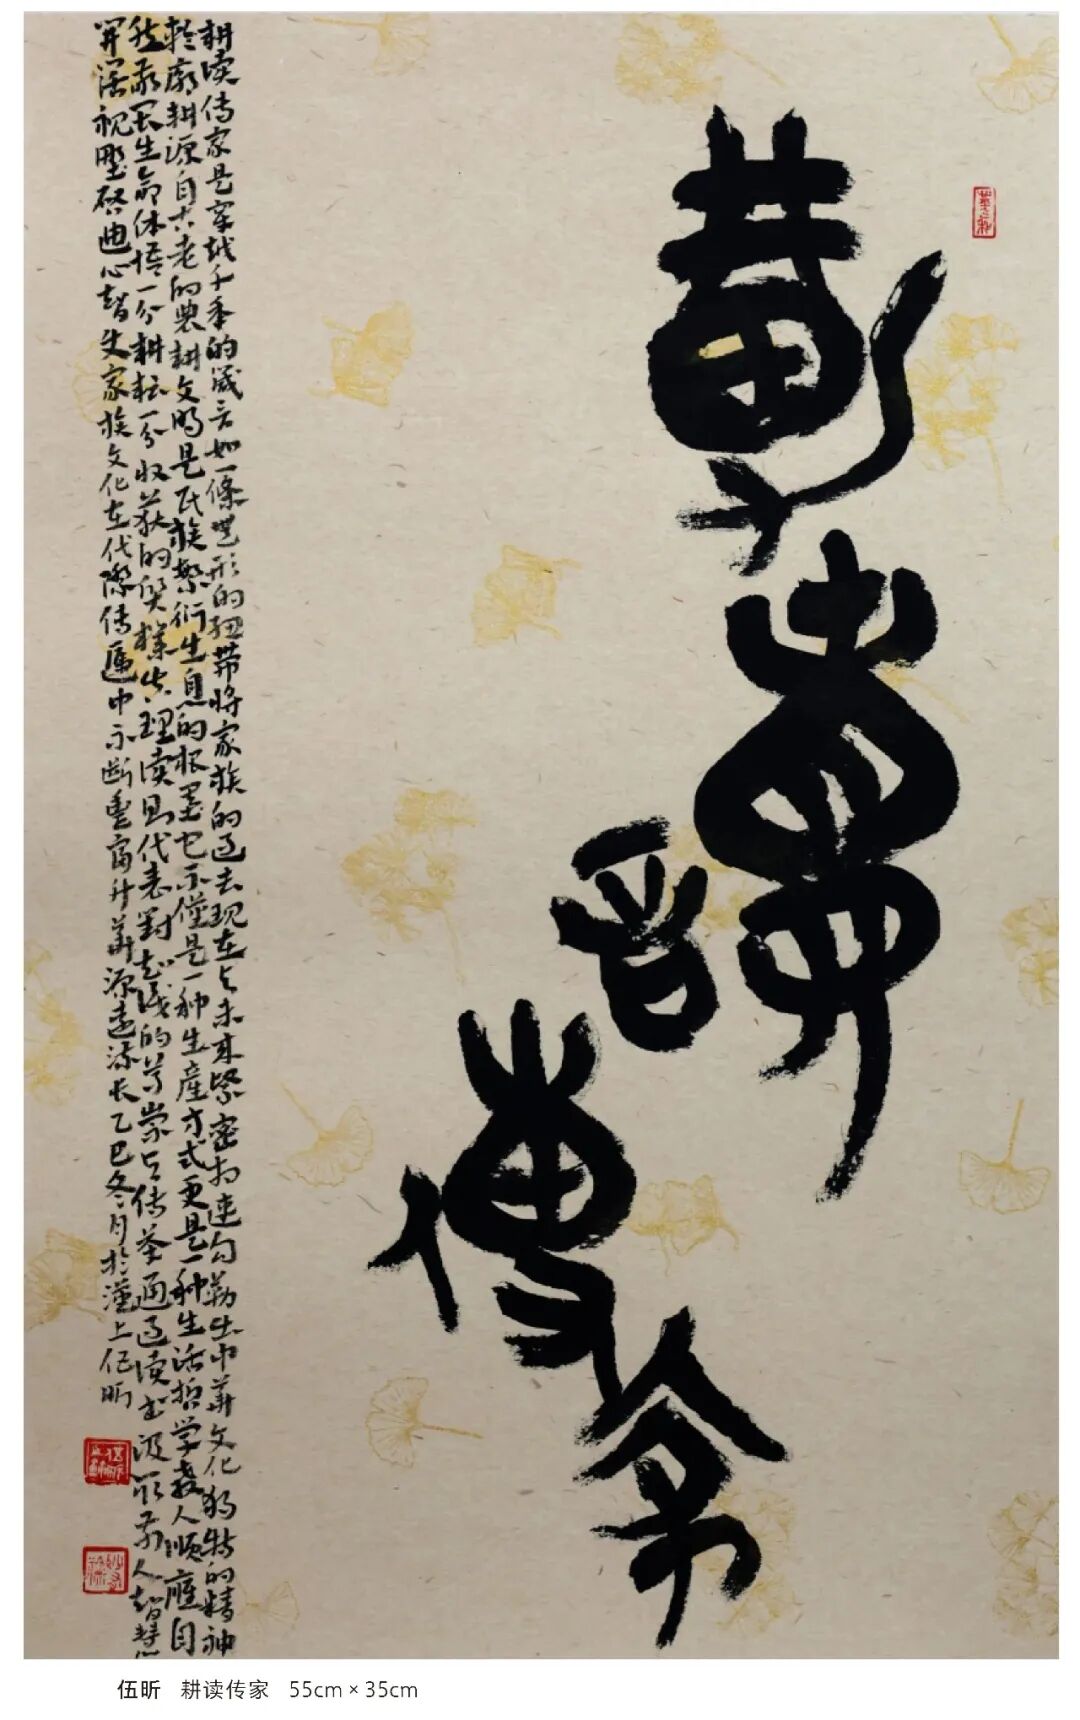 耕读传家
耕读传家是穿越千年的箴言如一条无形的纽带将家族的过去现在与未来紧密相连勾勒出中华文化独特的精神
轮廓耕源自古老的农耕文明是民族繁衍生息的根基它不仅是一种生産方式更是一种生活哲学教人顺应自
然敬畏生命体悟一分耕耘一分收获的质朴真理读则代表对知识的尊崇与传承通过读书汲取前人智慧
开阔视野启迪心智史家族文化在代际传递中不断丰富升华源远流长乙巳冬月於滬上伍昕
伍昕 耕读传家 55cm×35cm